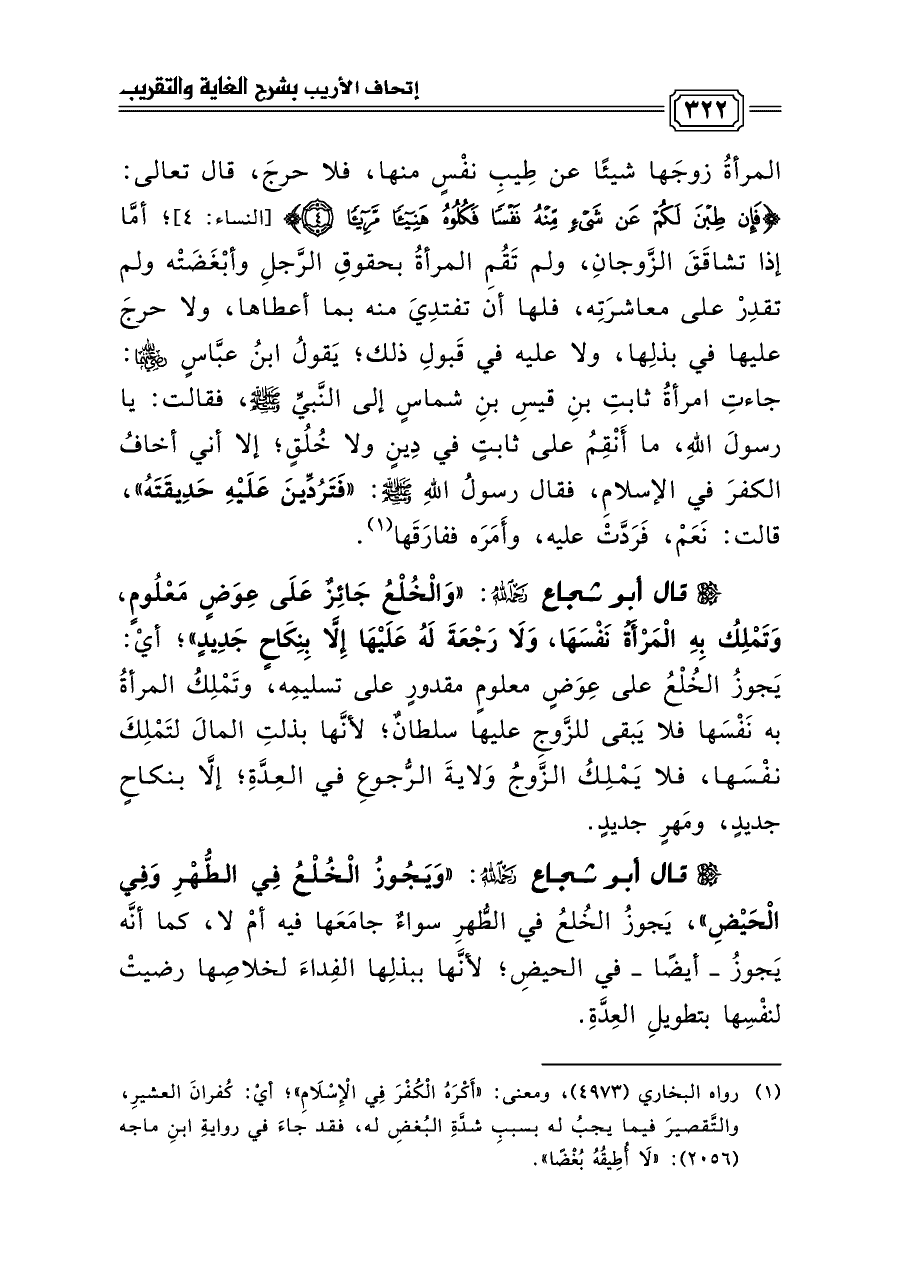 إتحاف الأريب بشرح الغاية والتقريب
٣٢٢
المرأةُ زوجَها شيئًا عن طِيبِ نفْسٍ منها، فلا حرجَ، قال تعالى:
﴿فَإِن طِبْنَ لَكُمْ عَن شَىْءٍ مِّنْهُ نَفْسًا فَكُلُوهُ هَنِيٓـًٔا مَّرِيٓـًٔا ٤﴾ [النساء: ٤]؛ أمَّا
إذا تشاقَقَ الزَّوجانِ، ولم تَقُمِ المرأةُ بحقوقِ الرَّجلِ وأبْغَضَتْه ولم
تقدِرْ على معاشرَتِه، فلها أن تفتدِيَ منه بما أعطاها، ولا حرجَ
عليها في بذلِها، ولا عليه في قَبولِ ذلك؛ يَقولُ ابنُ عبَّاسٍ رضي الله عنهما:
جاءتِ امرأةُ ثابتِ بنِ قيسِ بنِ شماسٍ إلى النَّبيِّ ﷺ، فقالت: يا
رسولَ اللهِ، ما أَنْقِمُ على ثابتٍ في دِينٍ ولا خُلُقٍ؛ إلا أني أخافُ
الكفرَ في الإسلامِ، فقال رسولُ اللهِ ﷺ: «فَتَرُدِّينَ عَلَيْهِ حَدِيقَتَهُ»،
قالت: نَعَمْ، فَرَدَّتْ عليه، وأَمَرَه ففارَقَها(١).
قال أبو شجاع رحمه الله: «وَالْخُلْعُ جَائِزٌ عَلَى عِوَضٍ مَعْلُومٍ،
وَتَمْلِكُ بِهِ الْمَرْأَةُ نَفْسَهَا، وَلَا رَجْعَةَ لَهُ عَلَيْهَا إِلَّا بِنِكَاحٍ جَدِيدٍ»؛ أيْ:
يَجوزُ الخُلْعُ على عِوَضٍ معلومٍ مقدورٍ على تسليمِه، وتَمْلِكُ المرأةُ
به نَفْسَها فلا يَبقى للزَّوجِ عليها سلطانٌ؛ لأنَّها بذلتِ المالَ لتَمْلِكَ
نفْسَها، فلا يَمْلِكُ الزَّوجُ وَلايةَ الرُّجوعِ في العِدَّةِ؛ إلَّا بنكاحٍ
جديدٍ، ومَهرٍ جديدٍ.
قال أبو شجاع رحمه الله: «وَيَجُوزُ الْخُلْعُ فِي الطُّهْرِ وَفِي
الْحَيْضِ»، يَجوزُ الخُلعُ في الطُّهرِ سواءٌ جامَعَها فيه أمْ لا، كما أنَّه
يَجوزُ ـ أيضًا ـ في الحيضِ؛ لأنَّها ببذلِها الفِداءَ لخلاصِها رضيتْ
لنفْسِها بتطويلِ العِدَّةِ.
(١) رواه البخاري (٤٩٧٣)، ومعنى: «أَكْرَهُ الْكُفْرَ فِي الْإِسْلَامِ»؛ أيْ: كُفرانَ العشيرِ،
والتَّقصيرَ فيما يجبُ له بسببِ شدَّةِ البُغضِ له، فقد جاءَ في روايةِ ابنِ ماجه
(٢٠٥٦): «لَا أُطِيقُهُ بُغْضًا».